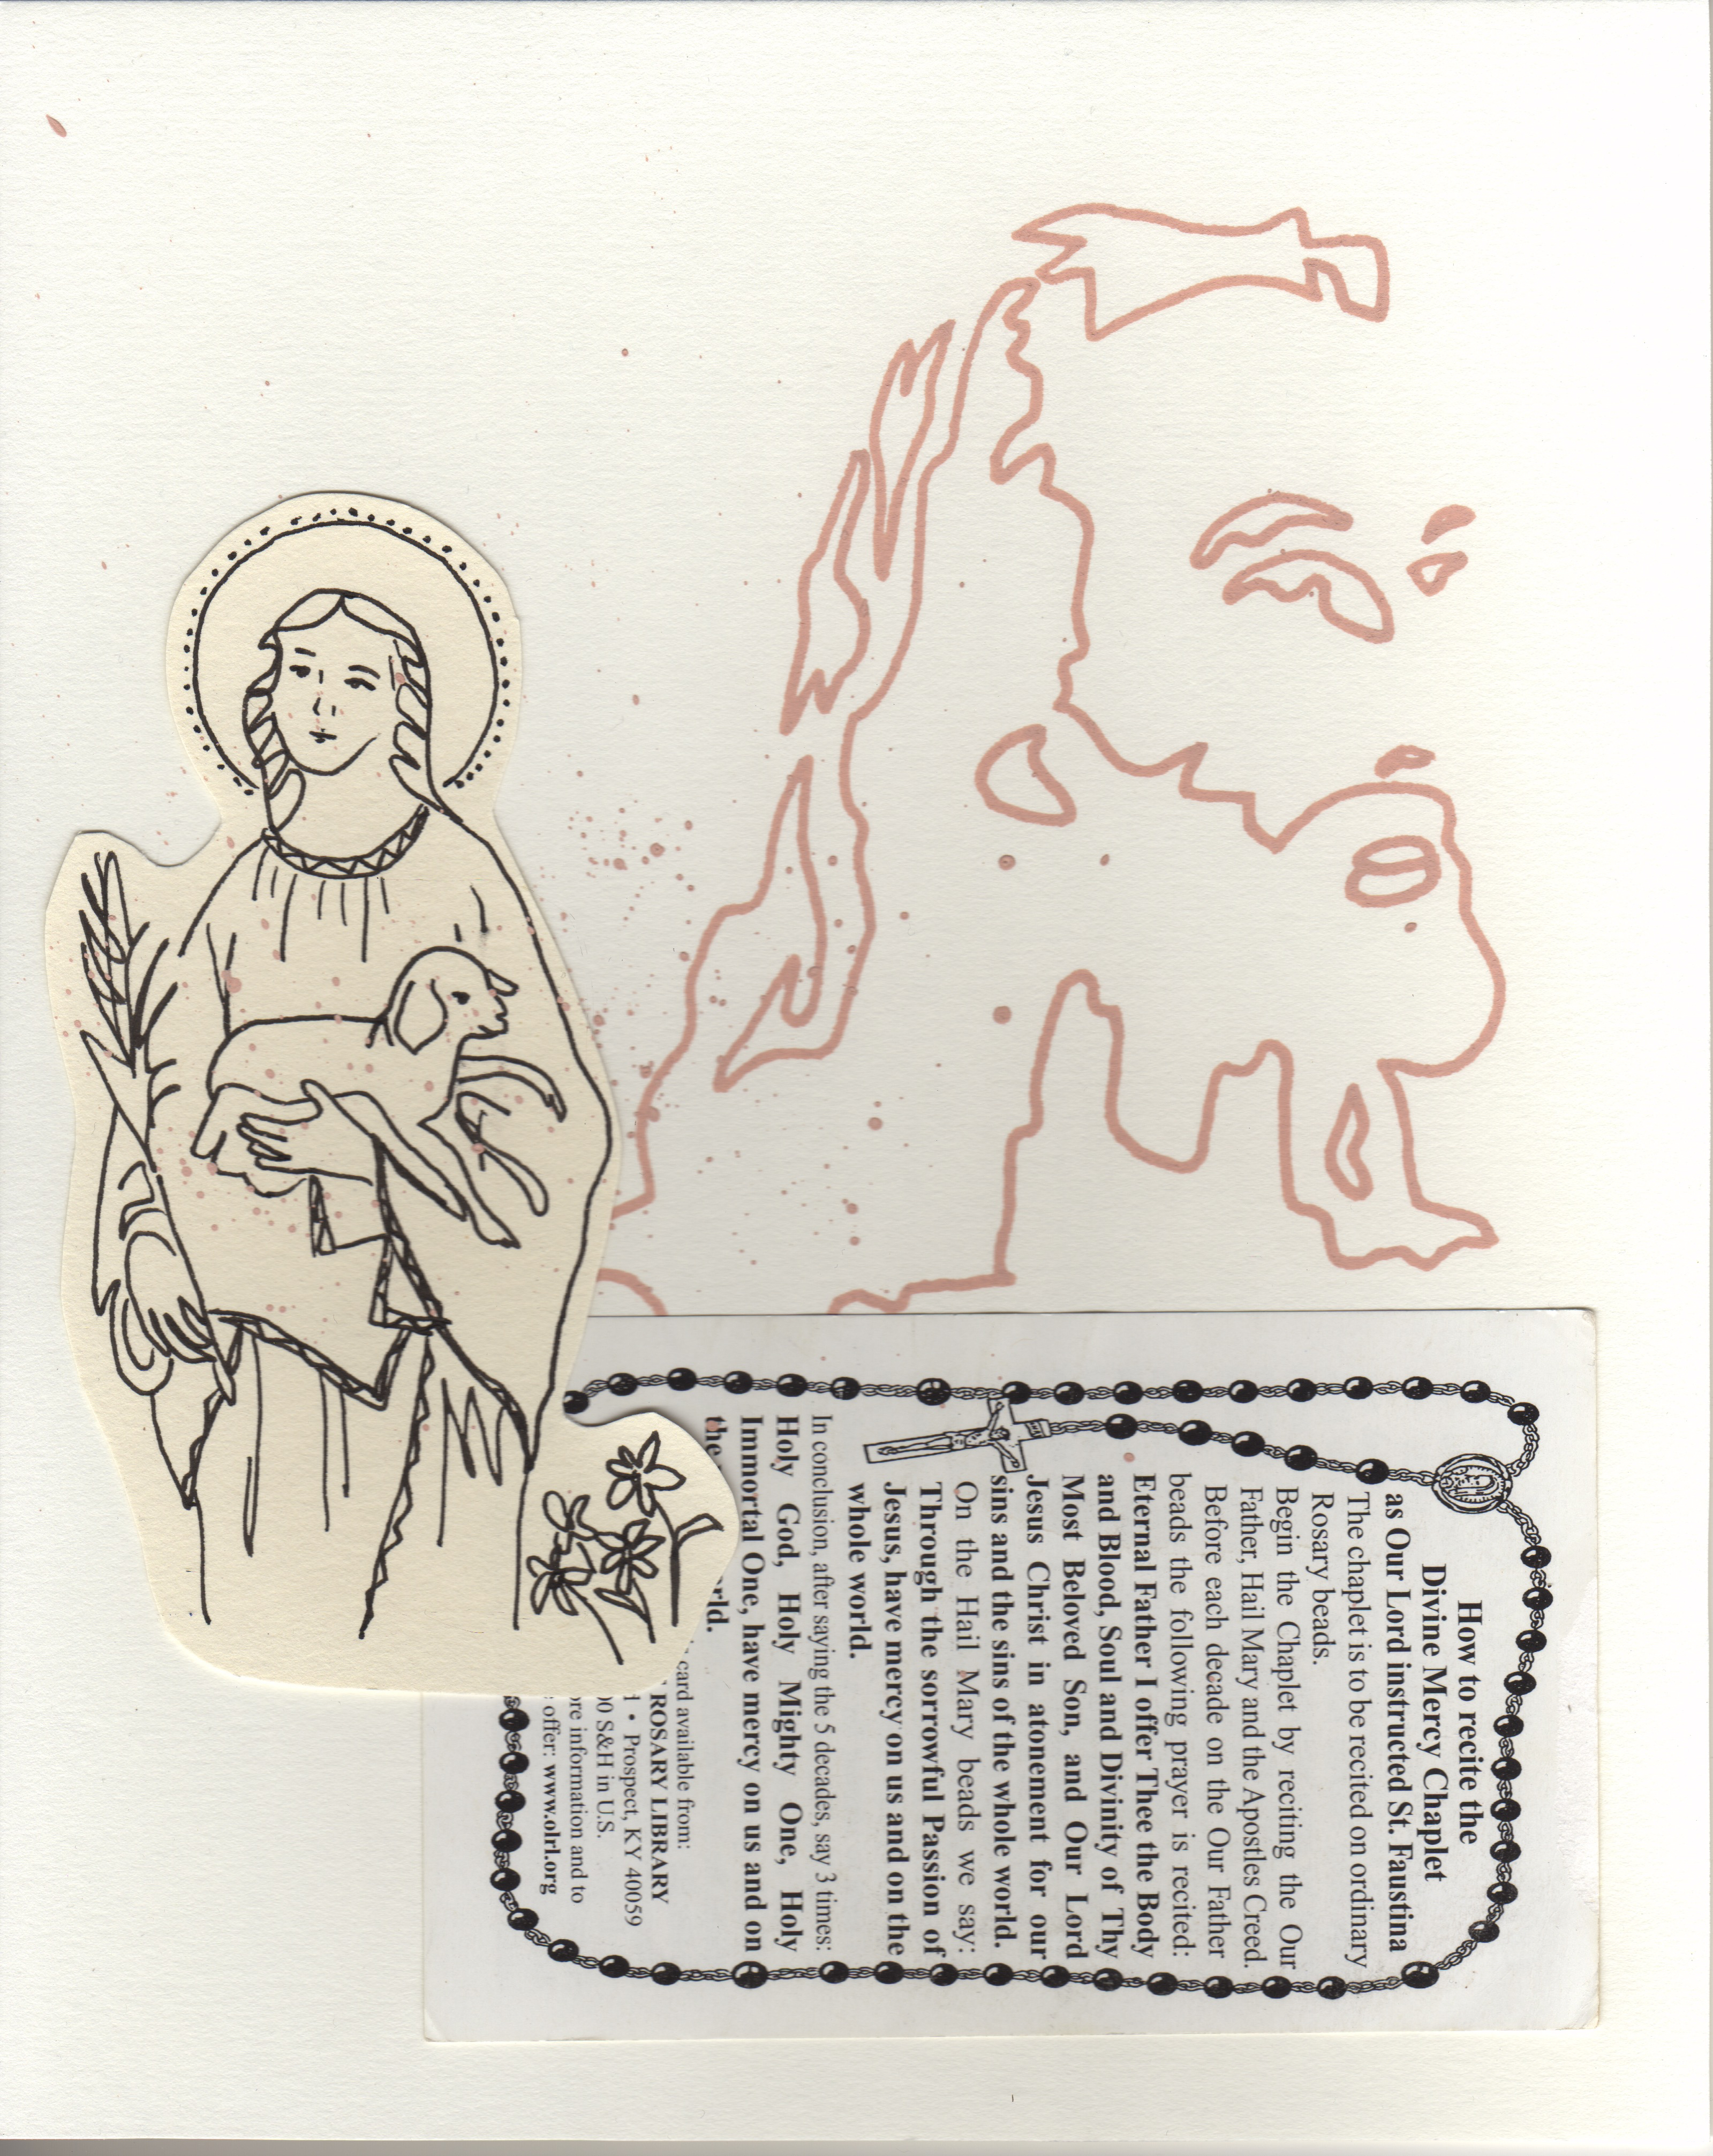 How to recite the
Divine Mercy Chaplet
as Our Lord instructed St. Faustina
The chaplet is to be recited on ordinary
Rosary beads.
Begin the Chaplet by reciting the Our
Father, Hail Mary and the Apostles Creed.
Before each decade on the Our Father
beads the following prayer is recited:
Eternal Father I offer Thee the Body
and Blood, Soul and Divinity of Thy
Most Beloved Son, and Our Lord
Jesus Christ in atonement for our
sins and the sins of the whole world.
On the Hail Mary beads we say:
Through the sorrowful Passion of
Jesus, have mercy on us and on the
whole world.
In conclusion, after saying the 5 decades, say 3 times:
Holy God, Holy Mighty One, Holy
Immortal One, have mercy on us and on
the
card available from:
ROSARY LIBRARY
1 • Prospect, KY 40059
00 S&H in U.S.
ore information and to
offer: www.olrl.org